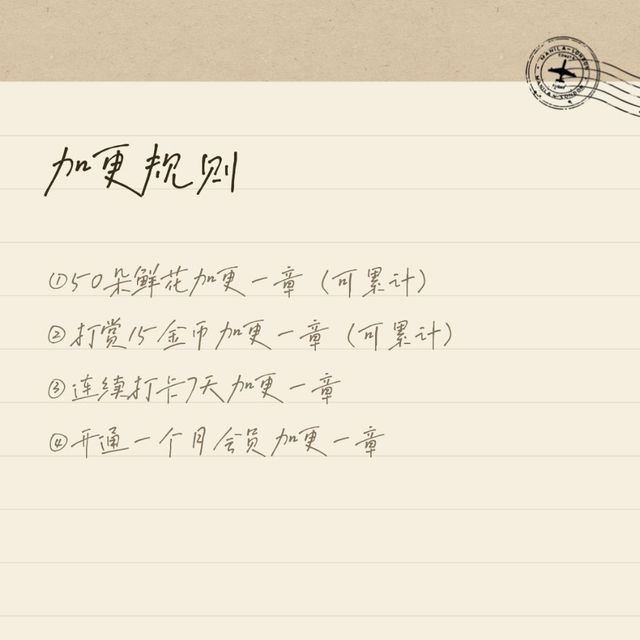 MANILA-LONDON
加更规则
①50朵鲜花加更一章（可累计）
②打赏15金币加更一章（可累计）
③连续打卡7天加更一章
④开通一个月会员加更一章